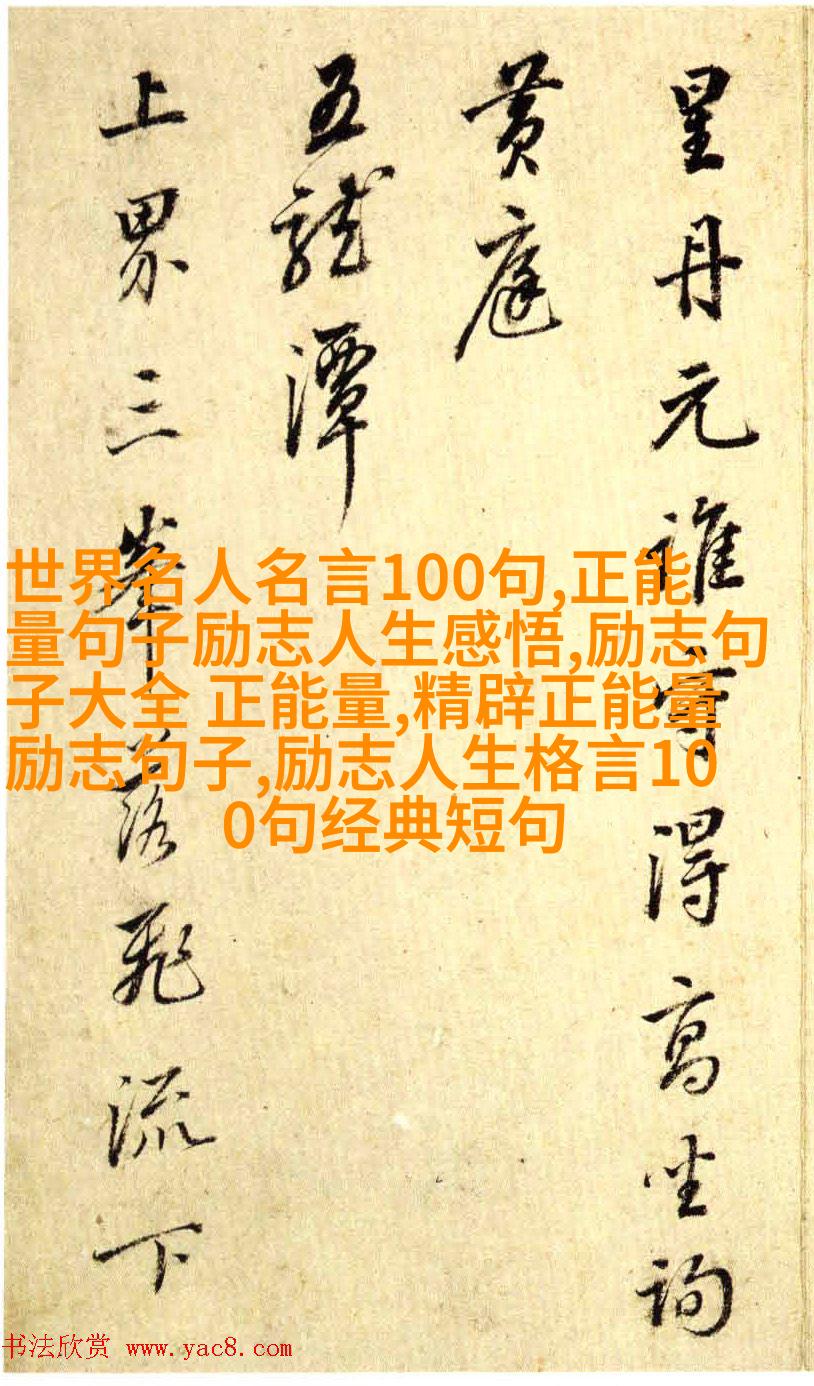 星丹元誰守得高坐詢
黄庭
五龍潭
上界三峯落飛流下
世界名人名言100句,正能
量句子励志人生感悟,励志句
子大全 正能量,精辟正能量
励志句子,励志人生格言10
0句经典短句
书法欣赏 www.yac8.com